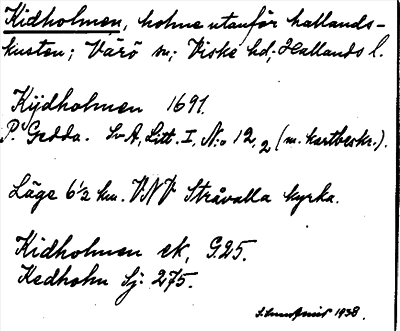 Kidholmen, holme utanför hallands-
kusten; Värö sn; Viske hd; Hallands l.
Kijdholmen 1691.
P. Gedda. Sv A, Litt. I, N:o 12, 2 (m. kartbeskr.).
Läge 6½ km. VNV Stråvalla kyrka.
Kidholmen ek, G.25.
Kedholm Sj: 275.
1938.